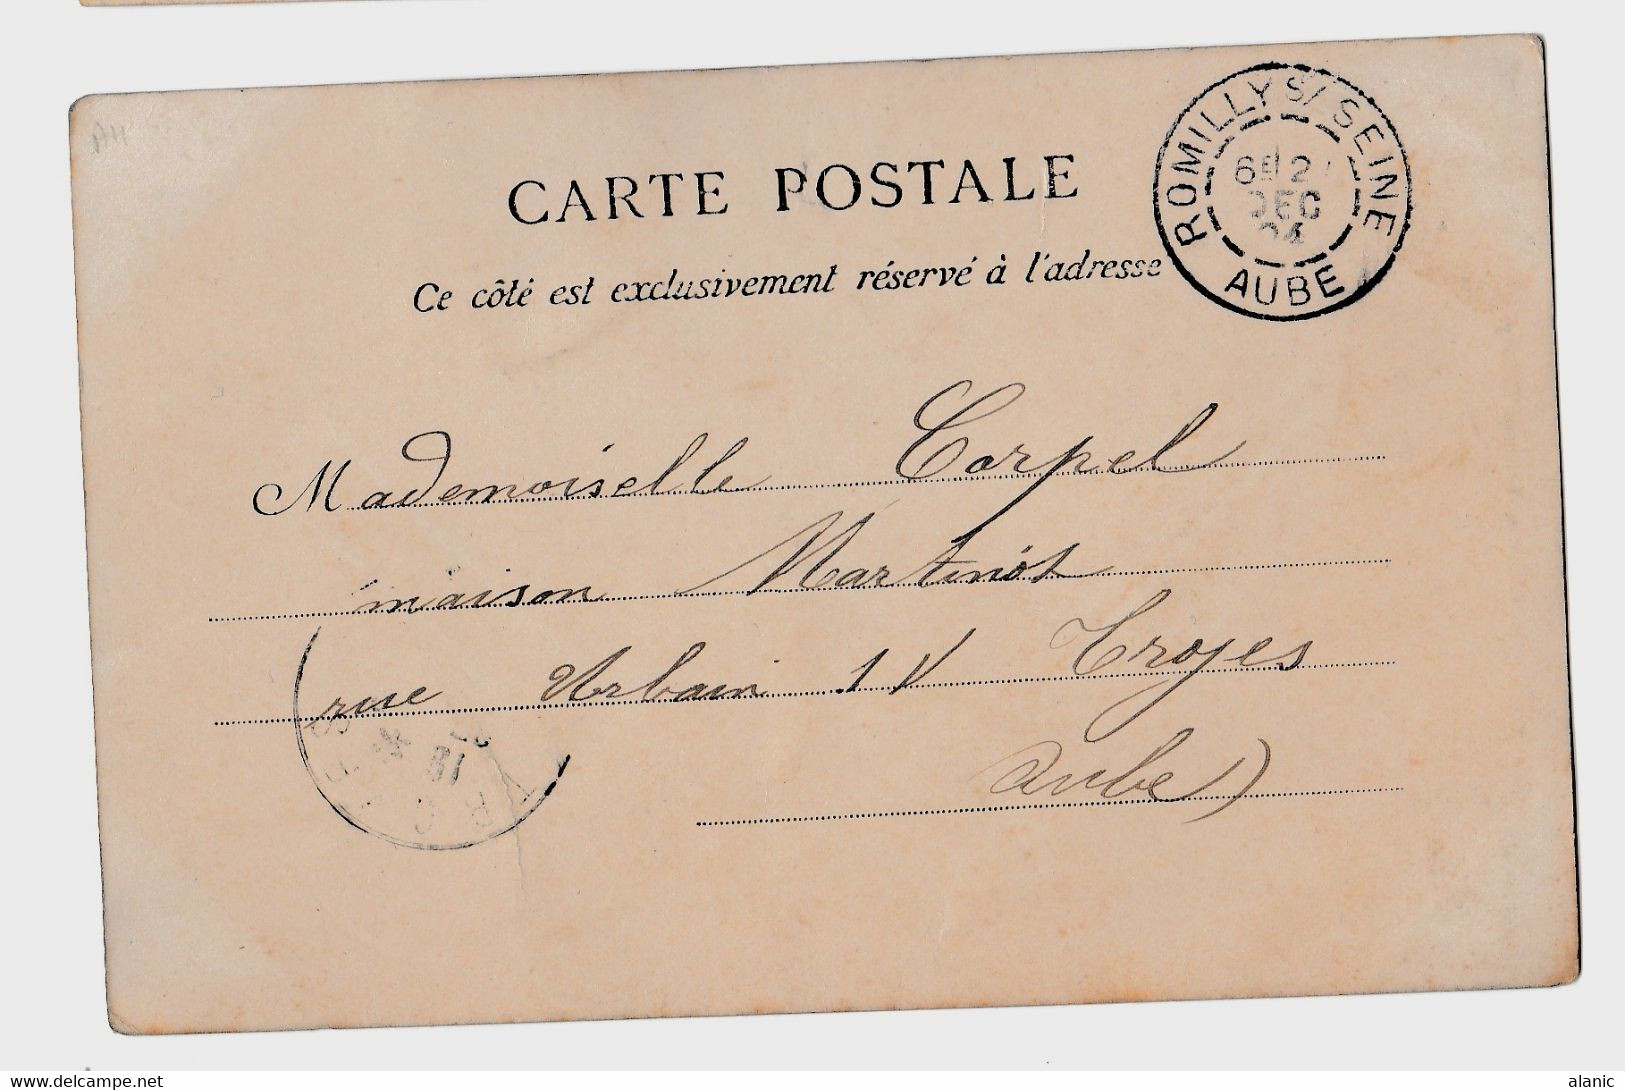 CARTE POSTALE
Ce côté est exclusivement réservé à l'adresse
ROMILLY S/ SEINE
DEC
04
AUBE
Mademoiselle Corpel
maison Martinot
rue Urbain IV Troyes
Aube)
www.delcampe.net
alanic